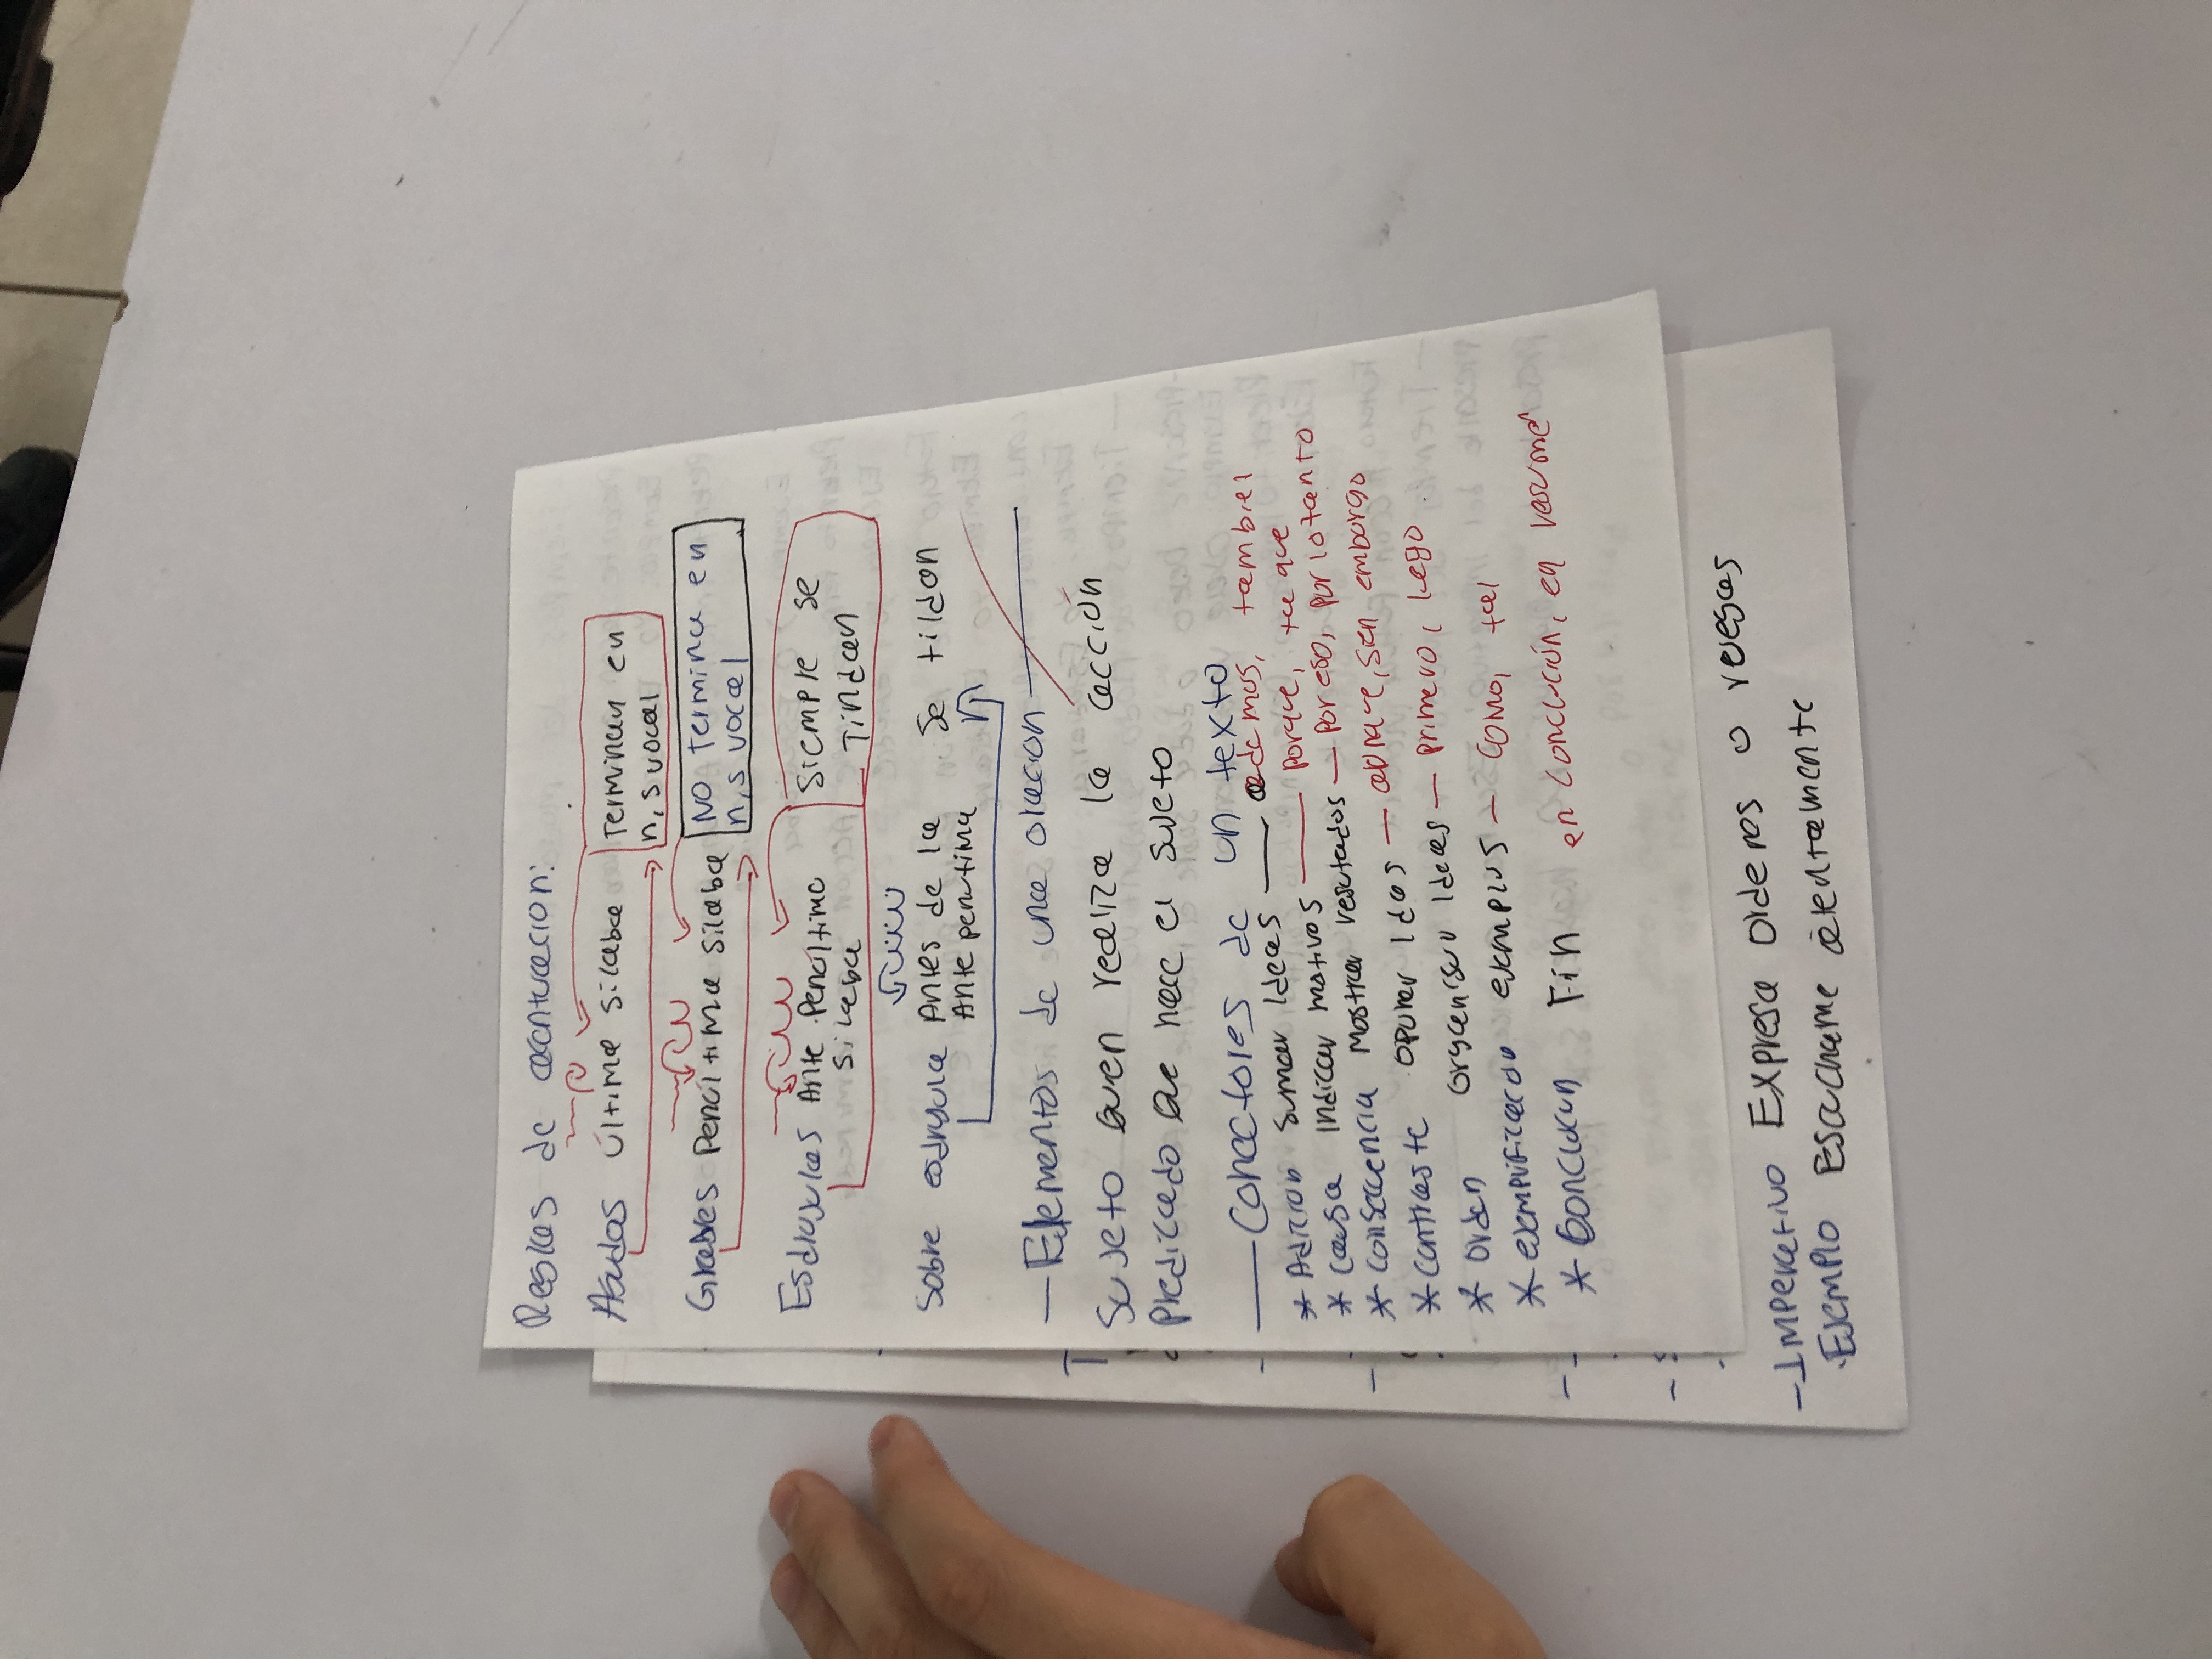 Reglas de acentuacion:
Agudas última silaba Terminan en
n, s vocal
Grabes Penúltima silaba NO Termina en
n, s vocal
Esdrujulas Ante Penúltima Siempre se
silaba Tildan
Sobre esdrujula Antes de la Se tildan
Ante penultima
— Elementos de una oracion
Sujeto Quen realiza la acción
Predicado Que hace el sujeto
— Conectores de un texto
* Adicion sumar Ideas — ademas, tambiel
* Causa Indicar motivos — porque, ya que
* Consecuencia mostrar resultados — por eso, por lo tanto
* Contraste oponer Ideas — aunque, sin embargo
* Orden Organisar Ideas — primero, luego
* ejemplificacion ejemplus — Como, tal
* Conclucion Fin en conclución, en resumen
- Imperativo Expresa Ordenes o ruegas
Ejemplo Escuchame atentamente